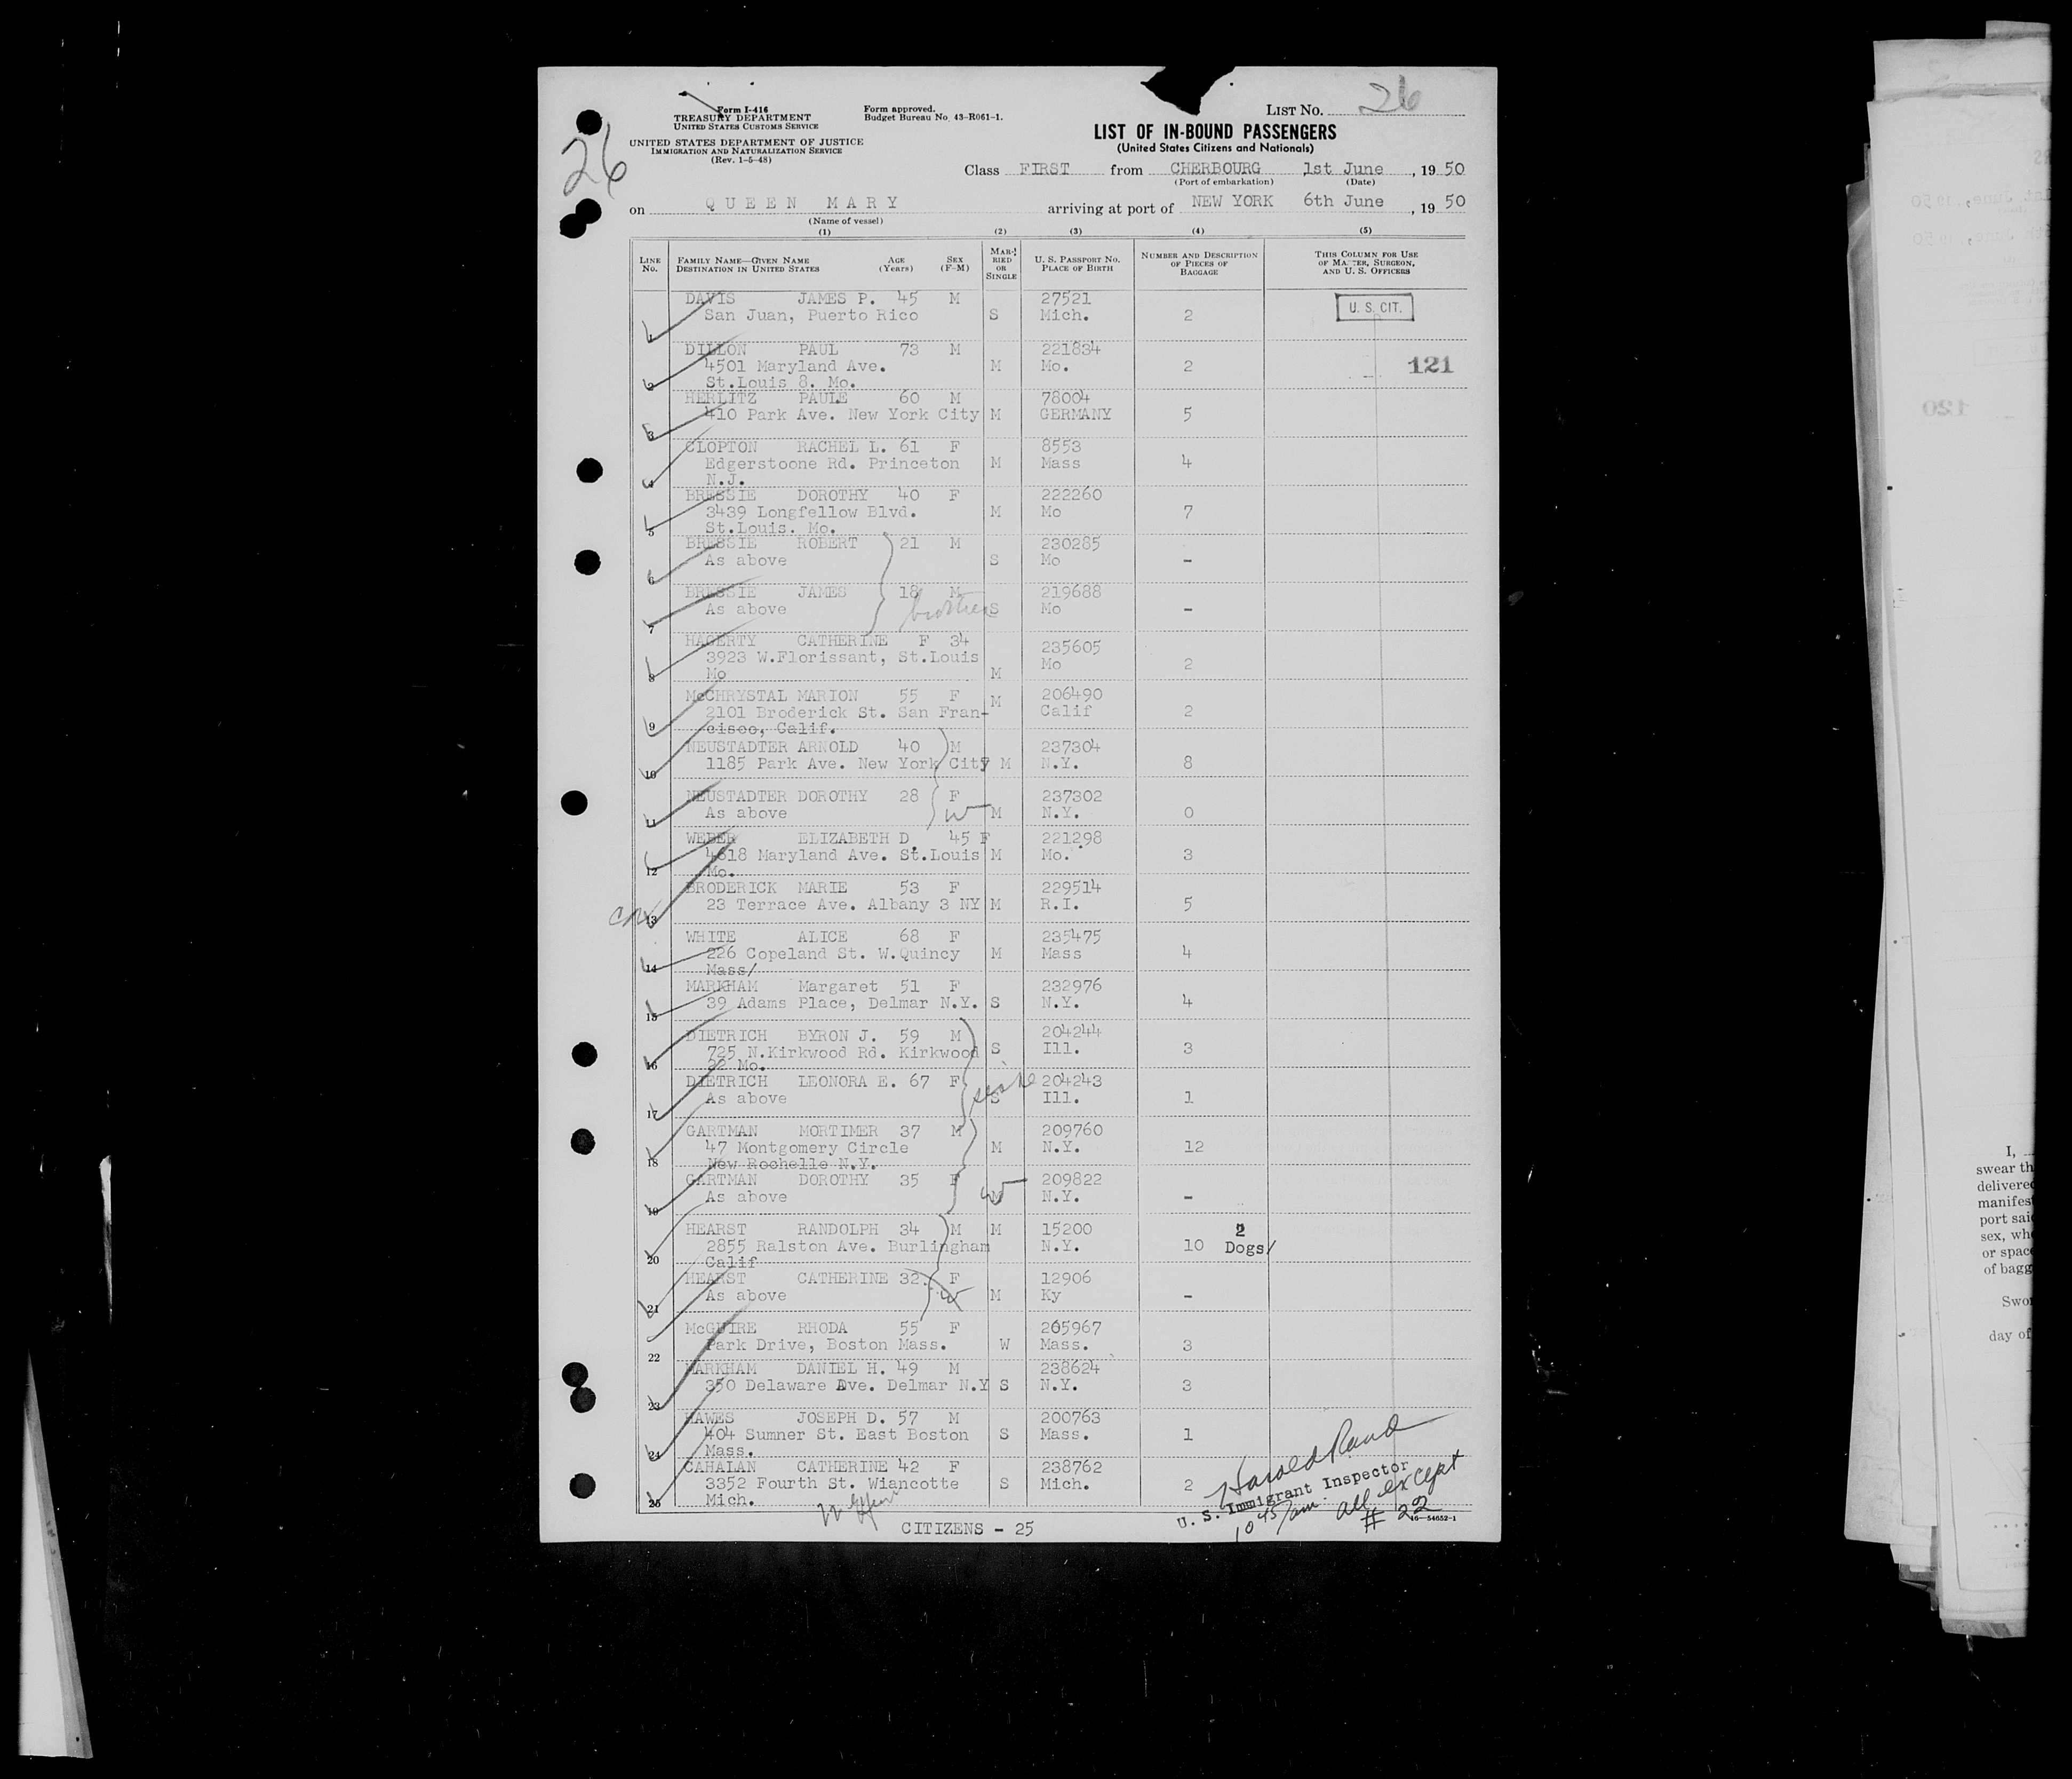 Form I-416
TREASURY DEPARTMENT
UNITED STATES CUSTOMS SERVICE
Form approved.
Budget Bureau No. 43-R061-1.
UNITED STATES DEPARTMENT OF JUSTICE
IMMIGRATION AND NATURALIZATION SERVICE
(Rev. 1-5-48)
26
LIST NO. 26
LIST OF IN-BOUND PASSENGERS
(United States Citizens and Nationals)
Class FIRST from CHERBOURG 1st June, 1950
(Port of embarkation) (Date)
on QUEEN MARY arriving at port of NEW YORK 6th June, 1950
(Name of vessel)
(1) (2) (3) (4) (5)
LINE NO. FAMILY NAME—GIVEN NAME DESTINATION IN UNITED STATES AGE (Years) SEX (F-M) MARRIED OR SINGLE U. S. PASSPORT NO. PLACE OF BIRTH NUMBER AND DESCRIPTION OF PIECES OF BAGGAGE THIS COLUMN FOR USE OF MASTER, SURGEON, AND U. S. OFFICERS
DAVIS JAMES P. 45 M 27521
1 San Juan, Puerto Rico S Mich. 2 U. S. CIT.
DILLON PAUL 73 M 221834
2 4501 Maryland Ave. M Mo. 2 121
St.Louis 8. Mo.
HERLITZ PAULE 60 M 78004
3 410 Park Ave. New York City M GERMANY 5
CLOPTON RACHEL L. 61 F 8553
4 Edgerstoone Rd. Princeton M Mass 4
N.J.
BRESSIE DOROTHY 40 F 222260
5 3439 Longfellow Blvd. M Mo 7
St.Louis. Mo.
BRESSIE ROBERT 21 M 230285
6 As above S Mo -
BRESSIE JAMES 18 M 219688
7 As above brothers S Mo -
HAGERTY CATHERINE F 34 235605
8 3923 W.Florissant, St.Louis Mo 2
Mo M
McCHRYSTAL MARION 55 F M 206490
9 2101 Broderick St. San Fran- Calif 2
cisco, Calif.
NEUSTADTER ARNOLD 40 M 237304
10 1185 Park Ave. New York City M N.Y. 8
NEUSTADTER DOROTHY 28 F 237302
11 As above W M N.Y. 0
WEBER ELIZABETH D. 45 F 221298
12 4618 Maryland Ave. St.Louis M Mo. 3
Mo.
BRODERICK MARIE 53 F 229514
13 23 Terrace Ave. Albany 3 NY M R.I. 5
WHITE ALICE 68 F 235475
14 226 Copeland St. W.Quincy M Mass 4
Mass/
MARKHAM Margaret 51 F 232976
15 39 Adams Place, Delmar N.Y. S N.Y. 4
DIETRICH BYRON J. 59 M 204244
16 725 N.Kirkwood Rd. Kirkwood S Ill. 3
22 Mo.
DIETRICH LEONORA E. 67 F 204243
17 As above S Ill. 1
GARTMAN MORTIMER 37 M 209760
18 47 Montgomery Circle M N.Y. 12
New Rochelle N.Y.
GARTMAN DOROTHY 35 F 209822
19 As above W M N.Y. -
HEARST RANDOLPH 34 M M 15200 2
20 2855 Ralston Ave. Burlingham N.Y. 10 Dogs/
Calif
HEARST CATHERINE 32. F 12906
21 As above W M Ky -
McGUIRE RHODA 55 F 205967
22 Park Drive, Boston Mass. W Mass. 3
MARKHAM DANIEL H. 49 M 238624
23 350 Delaware Ave. Delmar N.Y S N.Y. 3
HAWES JOSEPH D. 57 M 200763
24 404 Sumner St. East Boston S Mass. 1
Mass.
CAHALAN CATHERINE 42 F 238762
25 3352 Fourth St. Wiancotte S Mich. 2
Mich.
Harold Rand
U. S. Immigrant Inspector
10 45/am. all except
# 22
16—54652-1
CITIZENS - 25
120
I,
swear th
delivered
manifest
port said
sex, wh
or space
of bagg
Swor
day of